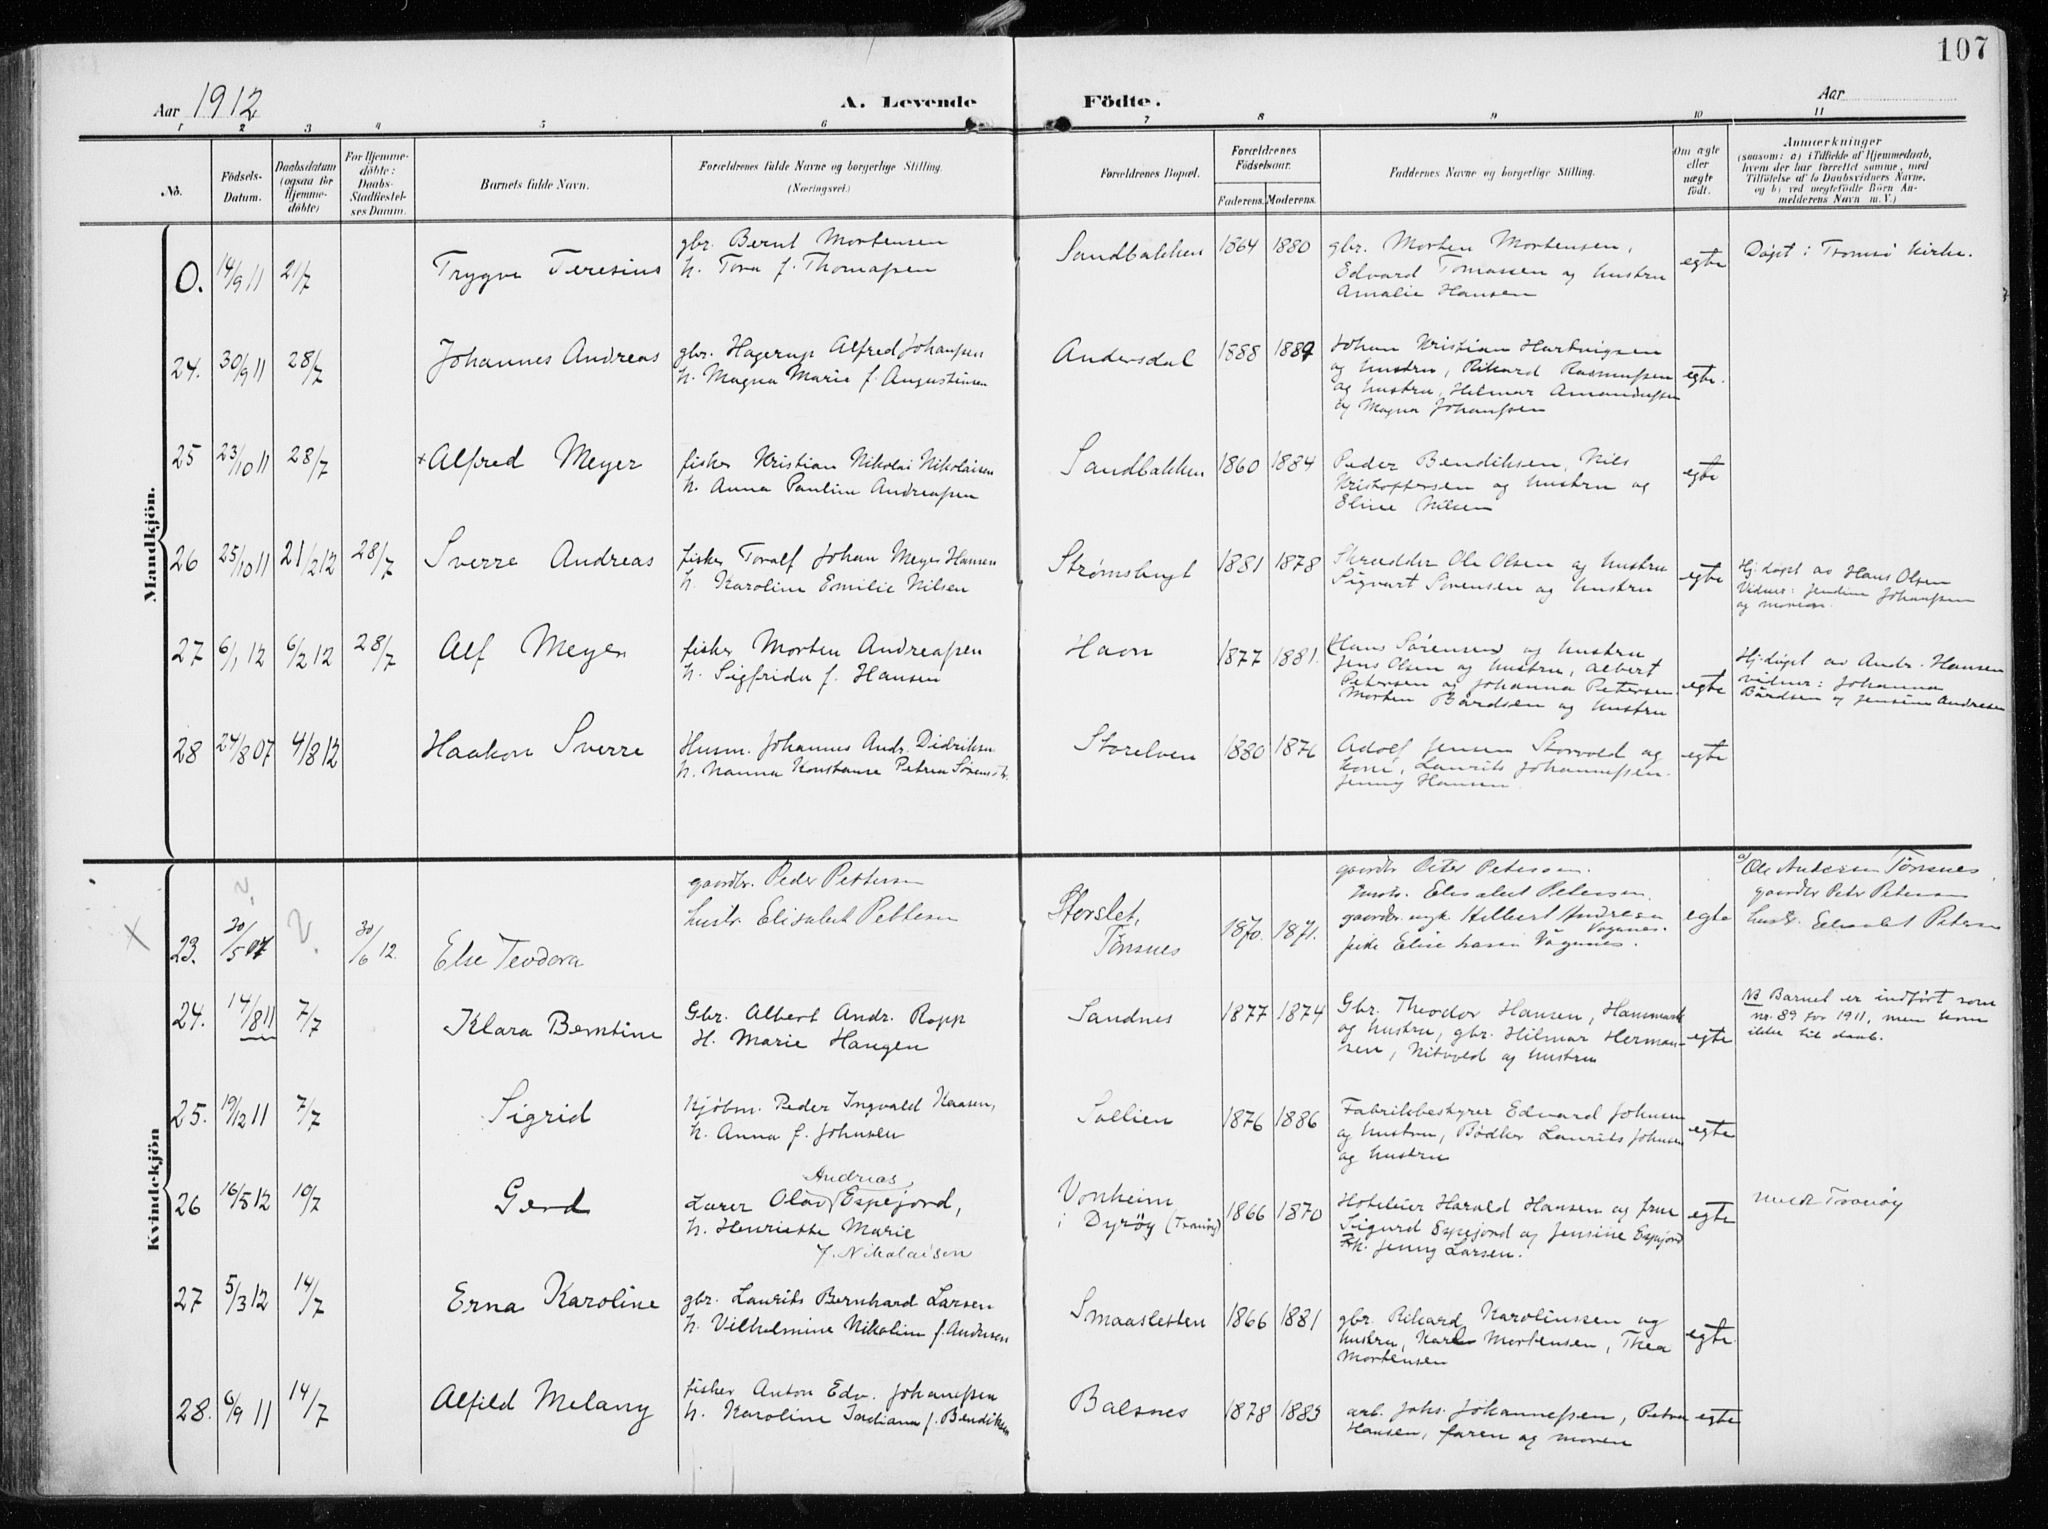 107
Aar 1912
A. Levende Födte.
Aar
1 2 3 4 5 6 7 8 9 10 11
No.
Födsels-
Datum.
Daabsdatum
(ogsaa for
Hjemme-
döbte)
For Hjemme-
döbte:
Daabs-
Stadfæstel-
ses Datum.
Barnets fulde Navn.
Forældrenes fulde Navne og borgerlige Stilling.
(Næringsvei.)
Forældrenes Bopæl.
Forældrenes
Födselsaar.
Faderens. Moderens.
Faddernes Navne og borgerlige Stilling.
Om ægte
eller
uægte
födt.
Anmærkninger
(saasom: a) i Tilfælde af Hjemmedaab,
hvem der har forrettet samme, med
Tilföielse af to Daabsvidners Navne,
og b) ved uægtefödte Börn An-
melderens Navn m. V.)
Mandkjön.
0. 14/9 11 21/7
Trygve Teresius
gbr. Bernt Mortensen
h. Tora f. Thomassen
Sandbakken 1864 1880
gbr. Morten Mortensen,
Edvard Tomassen og hustru
Amalie Hansen
egte
Døpt i Tromsø kirke.
24. 30/9 11 28/7
Johannes Andreas
gbr. Hagerup Alfred Johanssen
h. Magna Marie f. Augustinsen
Andersdal 1888 1889
Johan Kristian Hartvigsen
og hustru, Rikard Rasmussen
og hustru, Hilmar Amandussen
og Magna Johanssen
egte.
25 23/10 11 28/7
× Alfred Meyer
fisker Kristian Nikolai Nikolaisen
h. Anna Pauline Andreassen
Sandbakken 1860 1884
Peder Bendiksen, Nils
Kristoffersen og hustru og
Eline Nilsen
egte
26 25/10 11 21/2 12 28/7
Sverre Andreas
fisker Toralf Johan Meyer Hansen
h. Karoline Emilie Nilsen
Strømsbugt 1881 1878
Skrædder Ole Olsen og hustru
Sigvart Sørensen og hustru
egte
Hj.døpt av Hans Olsen
Vidner: Jendine Johanssen
og moren.
27 6/1 12 6/2 12 28/7
Alf Meyer
fisker Morten Andreassen
h. Sigfrida f. Hansen
Havn 1877 1881.
Hans Sørensen og hustru
Jens Olsen og hustru, Albert
Petersen og Johanna Petersen
Morten Bårdsen og hustru
egte
Hj.døpt av Andr. Hansen
vidner: Johanna
Bårdsen og Jensine Andresen
28 24/8 07 4/8 12
Haakon Sverre
Husm. Johannes Andr. Didriksen
h. Nanna Konstanse Petrea
Storelven 1880 1876
Adolf Jensen Storvold og
kone, Laurits Johannessen.
Jenny Hansen.
egte
Kvindekjön
× 23. 30/5 07 ? 30/6 12.
Else Teodora
gaardbr. Peder Pettersen
hustr. Elisabet Pettersen
Storslet,
Tønsnes
1870. 1871.
gaardbr. Peter Petersen.
hustr. Elisabet Petersen.
gaardbr. ungk. Hilbert Andresen
Vågnes.
pike Elise Vågnes.
egte
a) Ole Andersen Tønsnes.
gaardbr Peter Petersen
hustr. Elisabet Petersen
24. 14/8 11 7/7
Klara Berntine
Gbr. Albert Andr. Ropp
H. Marie Haugen
Sandnes 1877 1874
Gbr. Theodor Hansen, Hammark
og hustru, gbr. Hilmar Herman-
sen, Nitvold og hustru
egte
NB Barnet er indført som
nr. 89 for 1911, men kom
ikke til daab.
25. 19/12 11 7/7
Sigrid
Kjøbm. Peder Ingvald Kaasen,
h. Anna f. Johnsen
Sollien 1876 1886
Fabrikbestyrer Edvard Johnsen
og hustru, Bødker Laurits Johnsen
og hustru
egte
26 16/5 12 10/7
Gerd
Andreas
Lærer Olav Espejord,
h. Henriette Marie
f. Nikolaisen
Vonheim
i Dyrøy (Tranøy)
1866 1870
Hoteleier Harald Hansen og frue
Sigurd Espejord og Jensine Espejord
Frk. Jenny Larsen.
egte
meldt Tranøy
27 5/3 12 14/7
Erna Karoline
gbr. Laurits Bernhard Larsen
h. Vilhelmine Nikoline f. Andersen
Smaasletten 1866 1881
gbr. Rikard Karolinssen og
hustru, Karl Mortensen, Thea
Mortensen
egte
28. 6/9 11 14/7
Alfild Melany
fisker Anton Edv. Johanessen
h. Karoline Indiana f. Bendiksen
Balsnes 1878 1883
arb. Johs. Johannessen, Petra
Hansen, faren og moren
egte